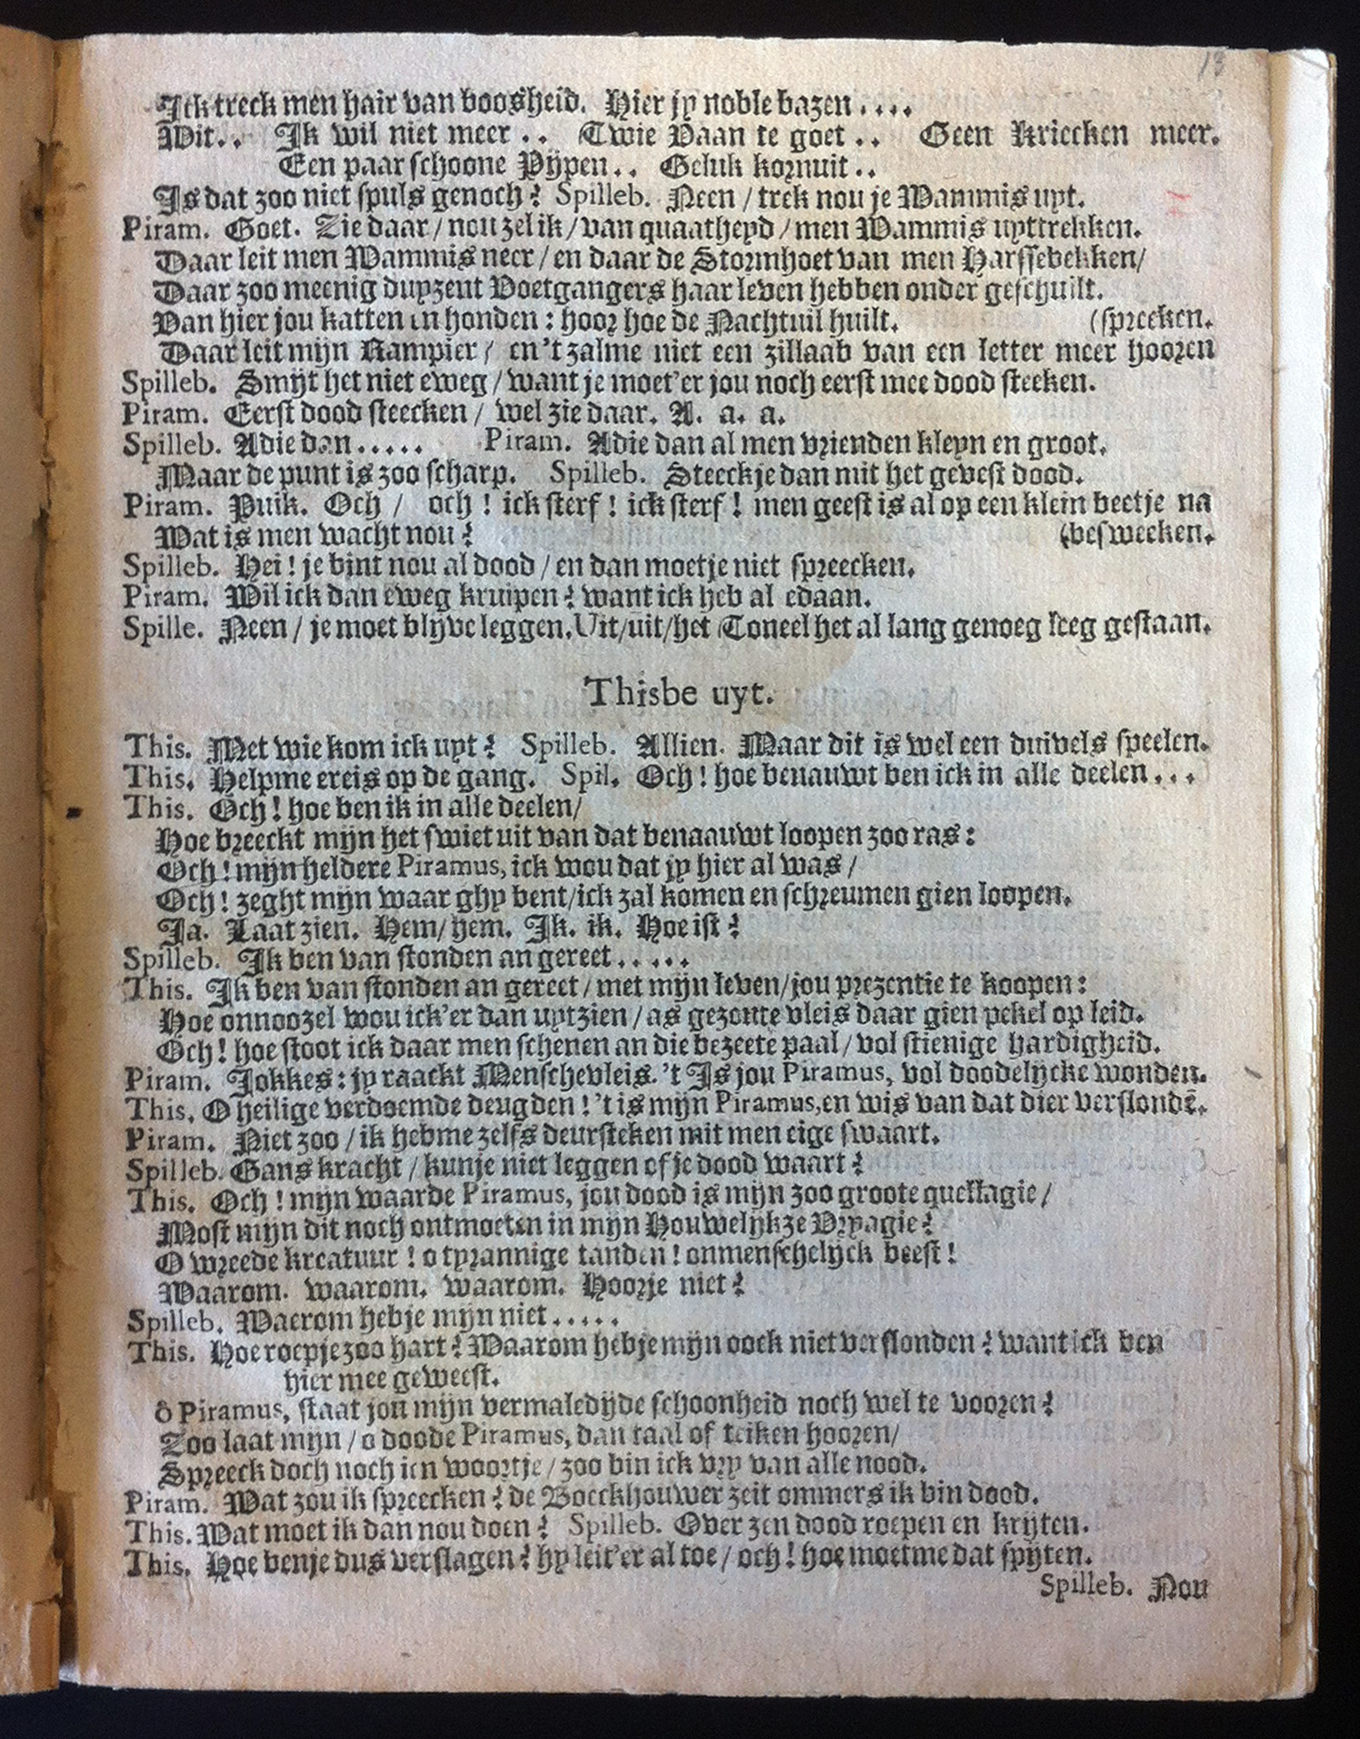 13
Ick treck men hair van boosheid. Hier jy noble bazen....
Wit.. Ik wil niet meer.. Twie Vaan te goet.. Geen Kriecken meer.
Een paar schoone Pypen.. Geluk kornuit..
Is dat zoo niet spuls genoch? Spilleb. Neen / trek nou je Wammis uyt.
Piram. Goet. Zie daar / nou zel ik / van quaatheyd / men Wammis uyttrekken.
Daar leit men Wammis neer / en daar de Stormhoet van men Harssebekken /
Daar zoo meenig duyzent Voetgangers haar leven hebben onder geschuilt.
Van hier jou katten en honden: hoor hoe de Nachtuil huilt. (spreeken.
Daar leit mijn Rampier / en 't zalme niet een zillaab van een letter meer hooren
Spilleb. Smijt het niet eweg / want je moet'er jou noch eerst mee dood steeken.
Piram. Eerst dood steecken / wel zie daar. A. a. a.
Spilleb. Adie dan..... Piram. Adie dan al men vrienden kleyn en groot.
Maar de punt is zoo scharp. Spilleb. Steeckje dan mit het gevest dood.
Piram. Puik. Och / och! ick sterf! ick sterf! men geest is al op een klein beetje na
Wat is men wacht nou? (besweeken.
Spilleb. Hei! je bint nou al dood / en dan moetje niet spreecken.
Piram. Wil ick dan eweg kruipen? want ick heb al edaan.
Spille. Neen / je moet blijve leggen. Uit/uit/het Toneel het al lang genoeg leeg gestaan.
Thisbe uyt.
This. Met wie kom ick uyt? Spilleb. Allien. Maar dit is wel een duivels speelen.
This. Helpme ereis op de gang. Spil. Och! hoe benauwt ben ick in alle deelen...
This. Och! hoe ben ik in alle deelen /
Hoe breeckt mijn het swiet uit van dat benaauwt loopen zoo ras:
Och! mijn heldere Piramus, ick wou dat jy hier al was /
Och! zeght mijn waar ghy bent / ick zal komen en schreumen gien loopen.
Ja. Laat zien. Hem / hem. Ik. ik. Hoe ist?
Spilleb. Ik ben van stonden an gereet.....
This. Ik ben van stonden an gereet / met mijn leven / jou prezentie te koopen:
Hoe onnoozel wou ick'er dan uytzien / as gezoute vleis daar gien pekel op leid.
Och! hoe stoot ick daar men schenen an die bezeete paal / vol stienige hardigheid.
Piram. Jokkes: jy raackt Menschevleis. 't Is jou Piramus, vol doodelijcke wonden.
This. O heilige verdoemde deugden! 't is mijn Piramus, en wis van dat dier verslondē.
Piram. Niet zoo / ik hebme zelfs deursteken mit men eige swaart.
Spilleb. Gans kracht / kunje niet leggen of je dood waart?
This. Och! mijn waarde Piramus, jou dood is mijn zoo groote quellagie /
Most mijn dit noch ontmoeten in mijn Houwelijkze Vryagie?
O wreede kreatuur! o tyrannige tanden! onmenschelijck beest!
Waarom. waarom. waarom. Hoorje niet?
Spilleb. Waerom hebje mijn niet.....
This. Hoe roepje zoo hart? Waarom hebje mijn oock niet verslonden? want ick ben
hier mee geweest.
ô Piramus, staat jou mijn vermaledijde schoonheid noch wel te vooren?
Zoo laat mijn / o doode Piramus, dan taal of teiken hooren /
Spreeck doch noch ien woortje / zoo bin ick vry van alle nood.
Piram. Wat zou ik spreecken? de Boeckhouwer zeit ommers ik bin dood.
This. Wat moet ik dan nou doen? Spilleb. Over zen dood roepen en krijten.
This. Hoe benje dus verslagen? hy leit'er al toe / och! hoe moetme dat spijten.
Spilleb. Nou